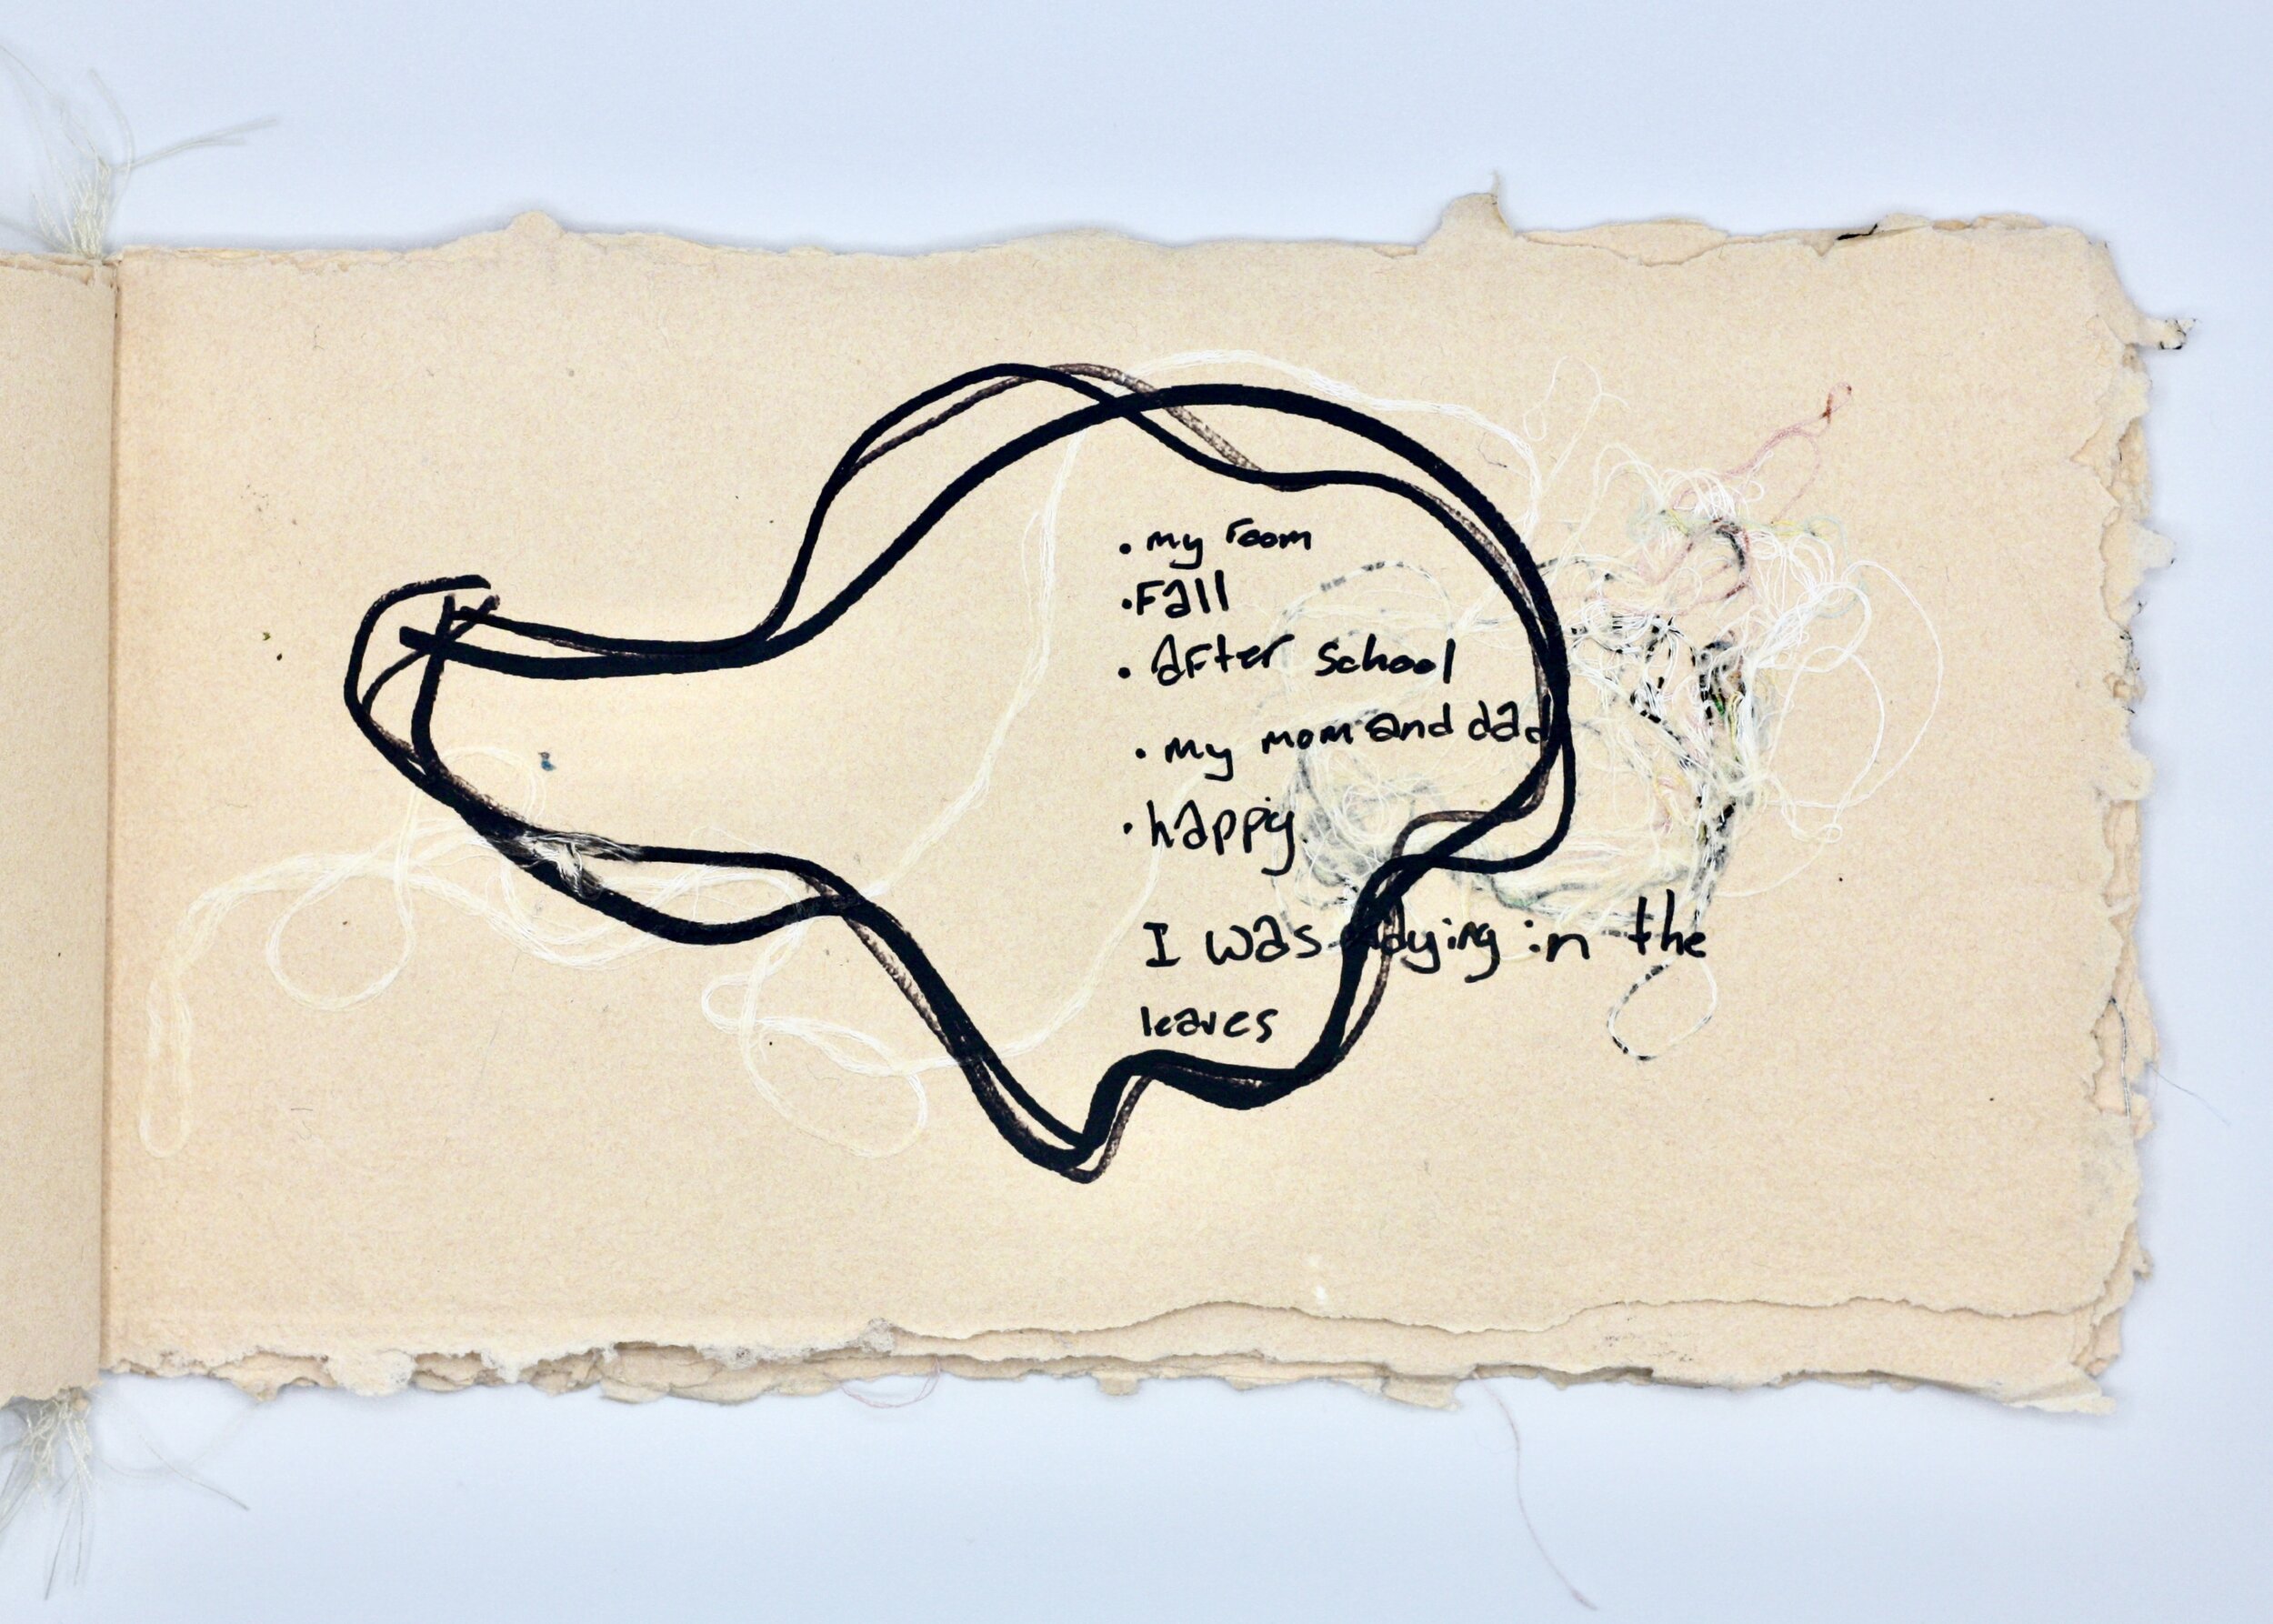 • my room
• Fall
• After school
• my mom and dad
• happy
I was in the
leaves